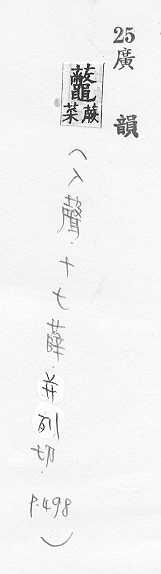 25
廣韻
虌 蕨菜
(入聲.十七薛.并列切.P.498)